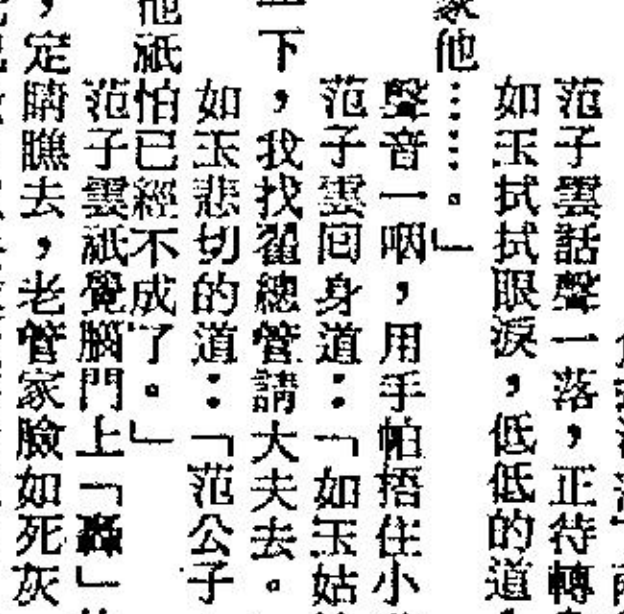 范子雲話聲一落，正待轉
如玉拭拭眼淚，低低的道
家他……。」
聲音一咽，用手帕捂住小
范子雲囘身道：「如玉姑
下，我找翟總管請大夫去。
如玉悲切的道：「范公子
他祇怕已經不成了。」
范子雲祇覺腦門上「轟」
，定睛瞧去，老管家臉如死灰